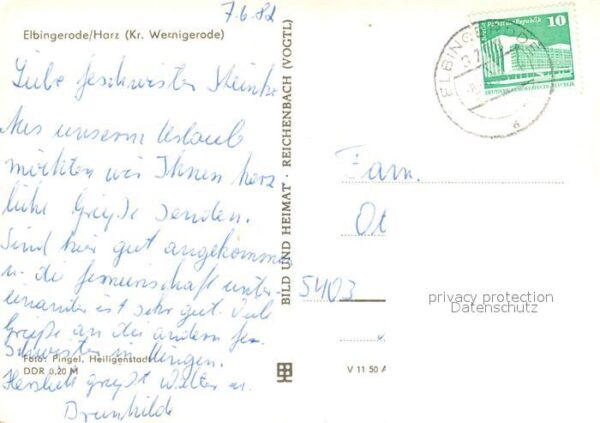 7.6.82
Elbingerode/Harz (Kr. Wernigerode)
Liebe Geschwister
Aus unserm Urlaub
möchten wir Ihnen herz
liche Grüße senden.
Sind hier gut angekommen
u. die Gemeinschaft unter-
einander ist sehr gut. Viele
Grüße an die andern Ge-
schwister in
Foto: Pingel, Heiligenstadt
DDR 0,20 M
Herzlich grüßt Walter u.
Brunhilde
BILD UND HEIMAT · REICHENBACH (VOGTL)
V 11 50 A
ELBINGERODE
10
DEUTSCHE DEMOKRATISCHE REPUBLIK
Fam.
Ot
5403
privacy protection
Datenschutz